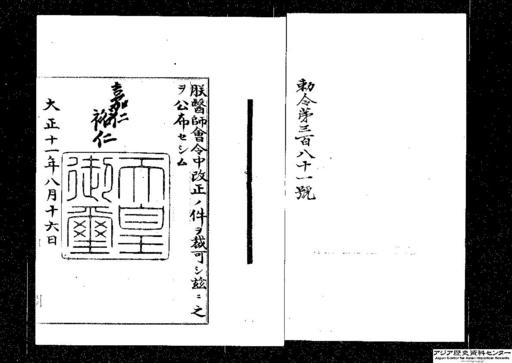 勅令第三百八十一號
朕醫師會令中改正ノ件ヲ裁可シ茲ニ之
ヲ公布セシム
嘉仁
裕仁
天皇
御璽
大正十一年八月十六日
アジア歴史資料センター
Japan Center for Asian Historical Records